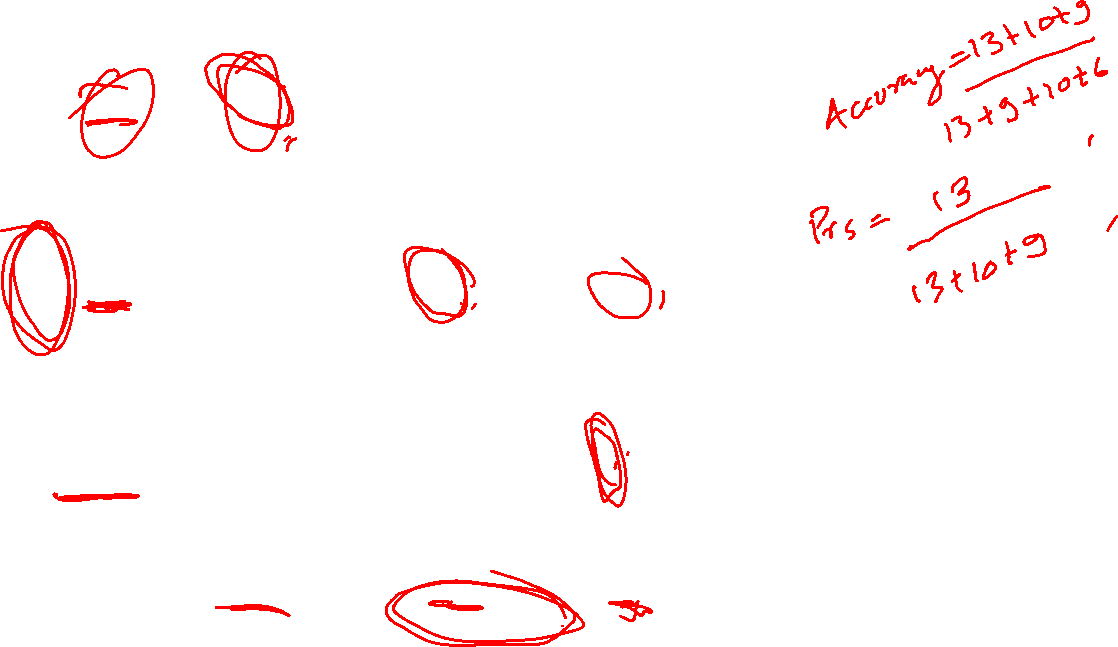 Accuracy = 13+10+9
13+9+10+6
Prs = 13
13+10+9